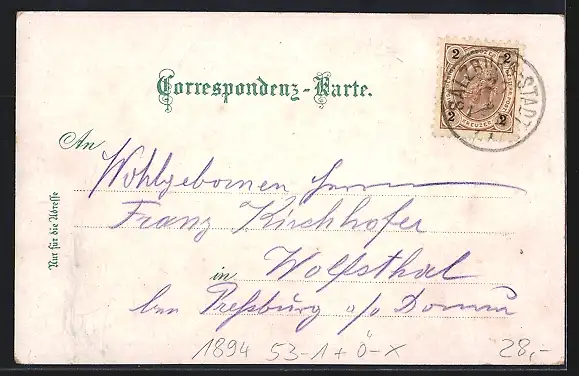 2 2
KREUZER
2 2
SALZBURG STADT
Correspondenz-Karte.
An
Wohlgebornen Herrn
Franz Kirchhofer
in Wolfsthal
bei Preßburg a/d Donau
Nur für die Adresse
1894 53-1+Ö-X 28,-